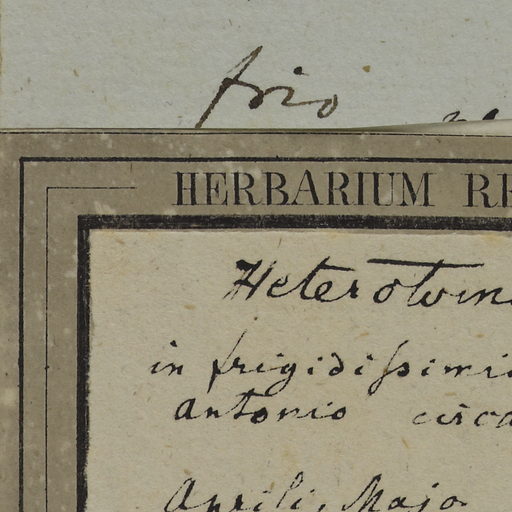 frio
HERBARIUM RE
Heterotom
in frigidissimi
Antonio circa
Aprili, Majo